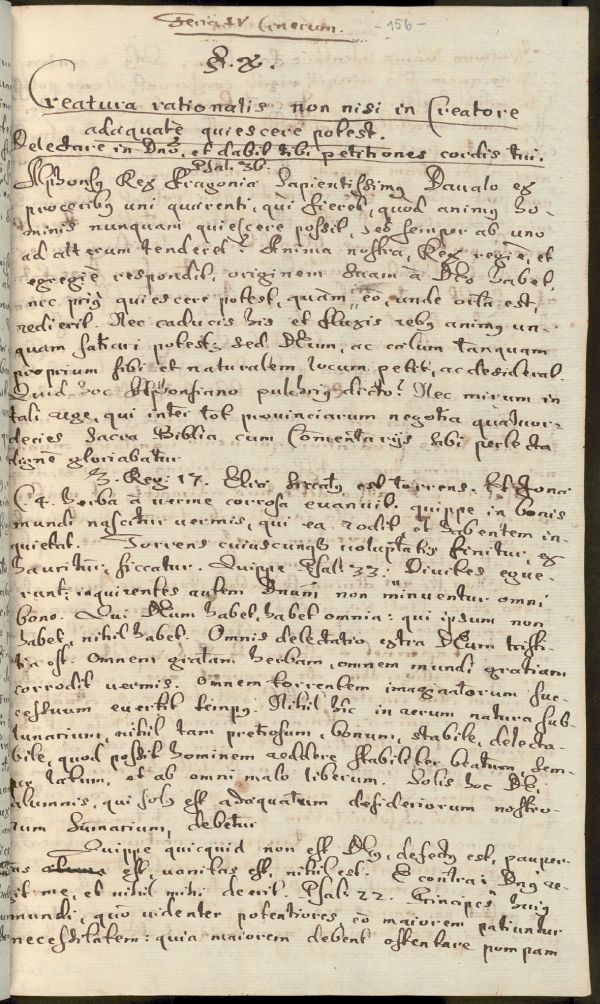 Feria IV Cinerum. - 156 -
§. X.
Creatura rationalis non nisi in Creatore
adaequatè quiescere potest.
Delectare in Dno, et dabit tibi petitiones cordis tui.
Psal. 36.
Alphonsus Rex Aragoniae sapientissimus Davalo ex
proceribus uni quaerenti, qui fieret, quod animus ho-
minis nunquam quiescere possit, sed semper ab uno
ad alterum tenderet? Anima nostra, Rex regiè, et
egregiè respondit, originem suam à Deo habet,
nec prius quiescere potest, quàm eò, unde orta est,
redierit. Nec caducis his et fluxis rebus animus un-
quam satiari potest: sed Deum, ac caelum tanquam
proprium sibi et naturalem locum petit, ac desiderat.
Quid hoc Alphonsiano pulchrius dicto? Nec mirum in
tali Rege, qui inter tot provinciarum negotia quatuor-
decies Sacra Biblia cum Commentarijs sibi perlecta
dignè gloriabatur.
3. Reg: 17. Eliae siccatus est torrens. Et Jonae
C 4. herba à verme corrosa evanuit. quippe in bonis
mundi nascitur vermis, qui ea rodit, et habentem in-
quietat. Torrens cuiuscunque voluptatis finitur, ex
hauritur, siccatur. Quippe Psal: 33: Divites egue-
runt: inquirentes autem Dnum non minuentur omni
bono. Qui Deum habet, habet omnia: qui ipsum non
habet, nihil habet. Omnis delectatio extra Deum tristi-
tia est. Omnem gratam herbam, omnem mundi gratiam
corrodit vermis. Omnem torrentem imaginatorum suc-
cessuum evertit tempus. Nihil hic in rerum natura sub-
lunarium, nihil tam pretiosum, bonum, stabile, delecta-
bile, quod possit hominem reddere stabiliter beatum, sem-
per laetum, et ab omni malo liberum. Solis hoc Dei
alumnis, qui solus est adaequatum desideriorum nostro-
rum summarium, debetur.
Quippe quicquid non est Deus, defectus est, pauper-
tas est, vanitas est, nihil est. E contra: Dnus re-
git me, et nihil mihi deerit. Psal: 22. Principes huius
mundi, quò videntur potentiores, eò maiorem patiuntur
necessitatem: quia maiorem debent ostentare pompam